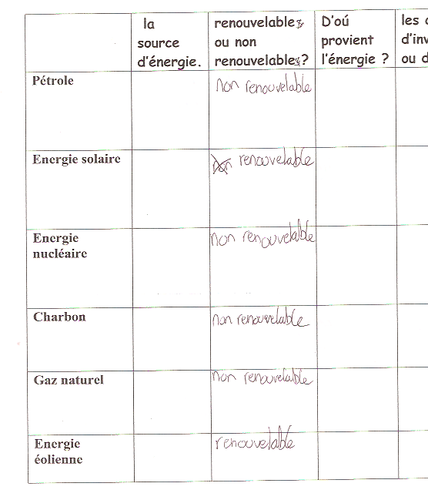 la
source
d'énergie.
renouvelables
ou non
renouvelables?
D'oú
provient
l'énergie ?
les
d'inv
ou d
Pétrole
non renouvelable
Energie solaire
non renouvelable
Energie
nucléaire
non renouvelable
Charbon
non renouvelable
Gaz naturel
non renouvelable
Energie
éolienne
renouvelable